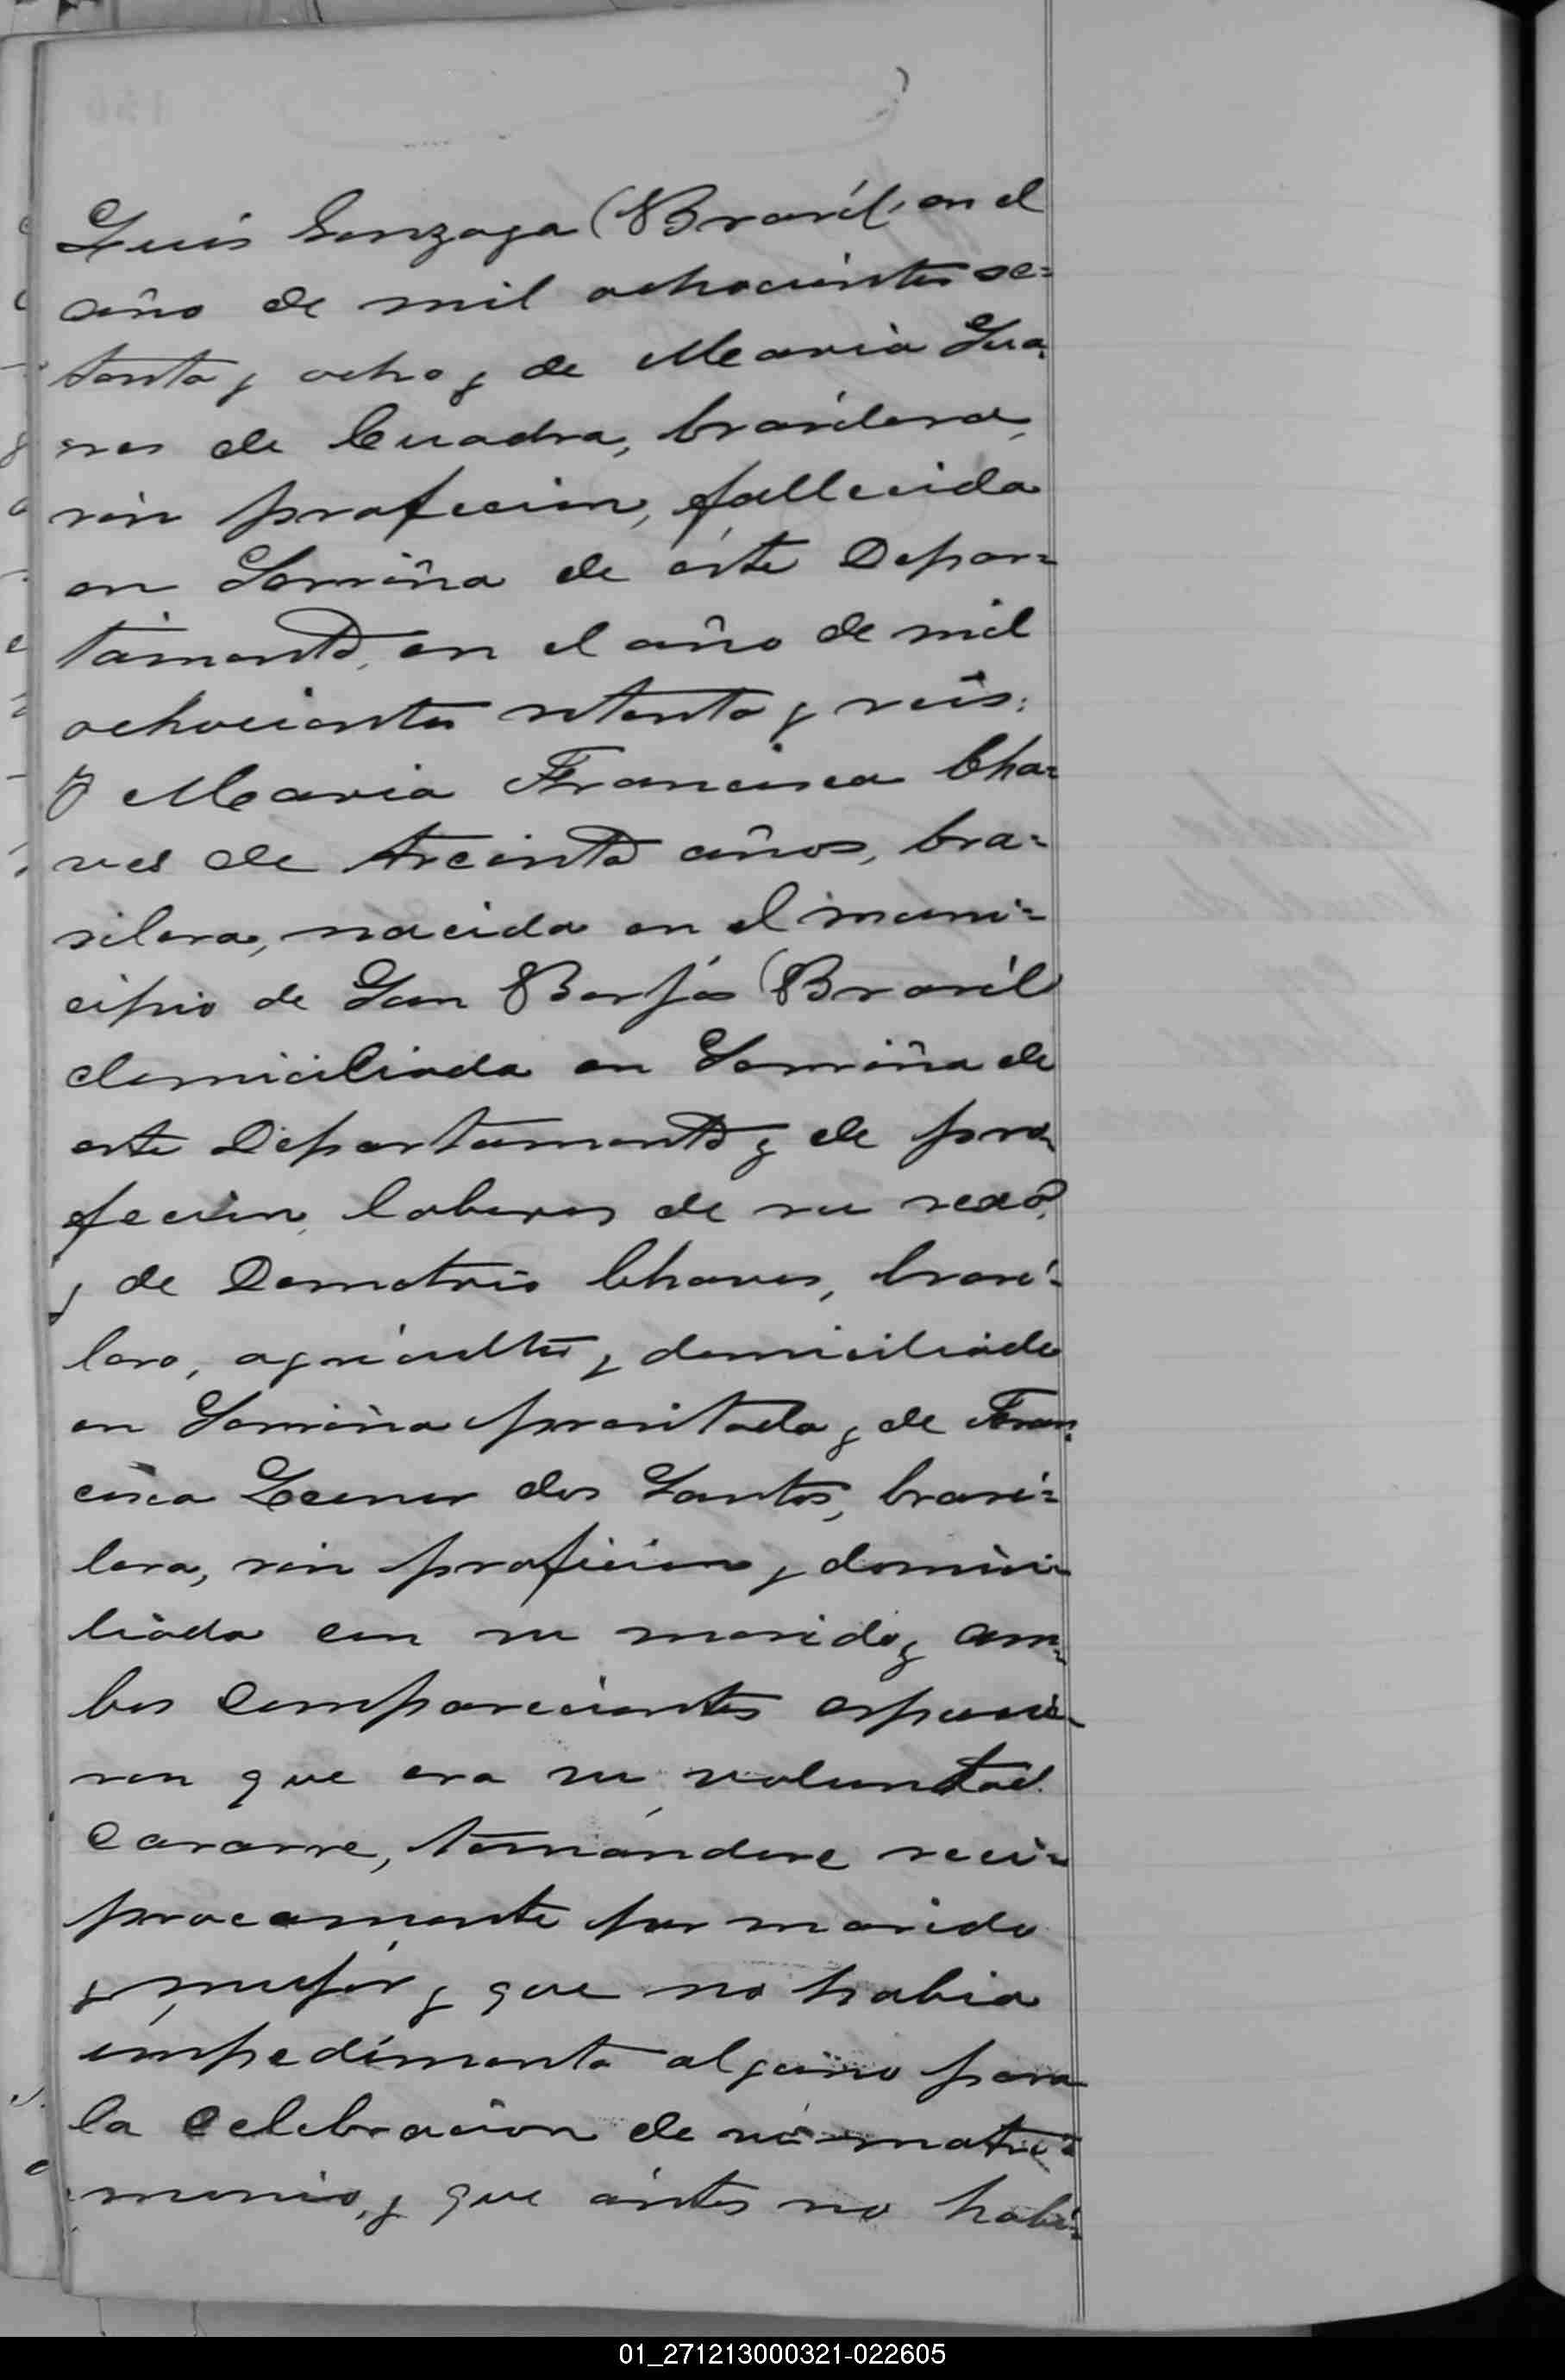 Luis Gonzaga (Brasil, en el
año de mil ochocientos se=
tenta y ocho y de Maria Sua=
res de Cuadra, brasilera,
sin profecion, fallecida
en Lorviña de éste Depar=
tamento, en el año de mil
ochocientos setenta y seis:
y Maria Francisca Cha=
ves de treinta años, bra=
silera, nacida en el muni=
cipio de San Borjas (Brasil
domiciliada en Lorviña de
este Departamento y de pro=
fecion, labores de su sexo,
y de Demetrio Chaves, brasi=
lero, agricultor y domiciliado
en Lorviña precitada y de Fran=
cisca dos Santos, brasi=
lera, sin profecion y domici=
liada con su marido y am=
bos comparecientes espusie=
ron que era su voluntad
casarse, tomandose reci=
procamente por marido
y mujer y que no habia
impedimento alguno para
la celebracion de su matri=
monio, y que ántes no habi=
01_271213000321-022605